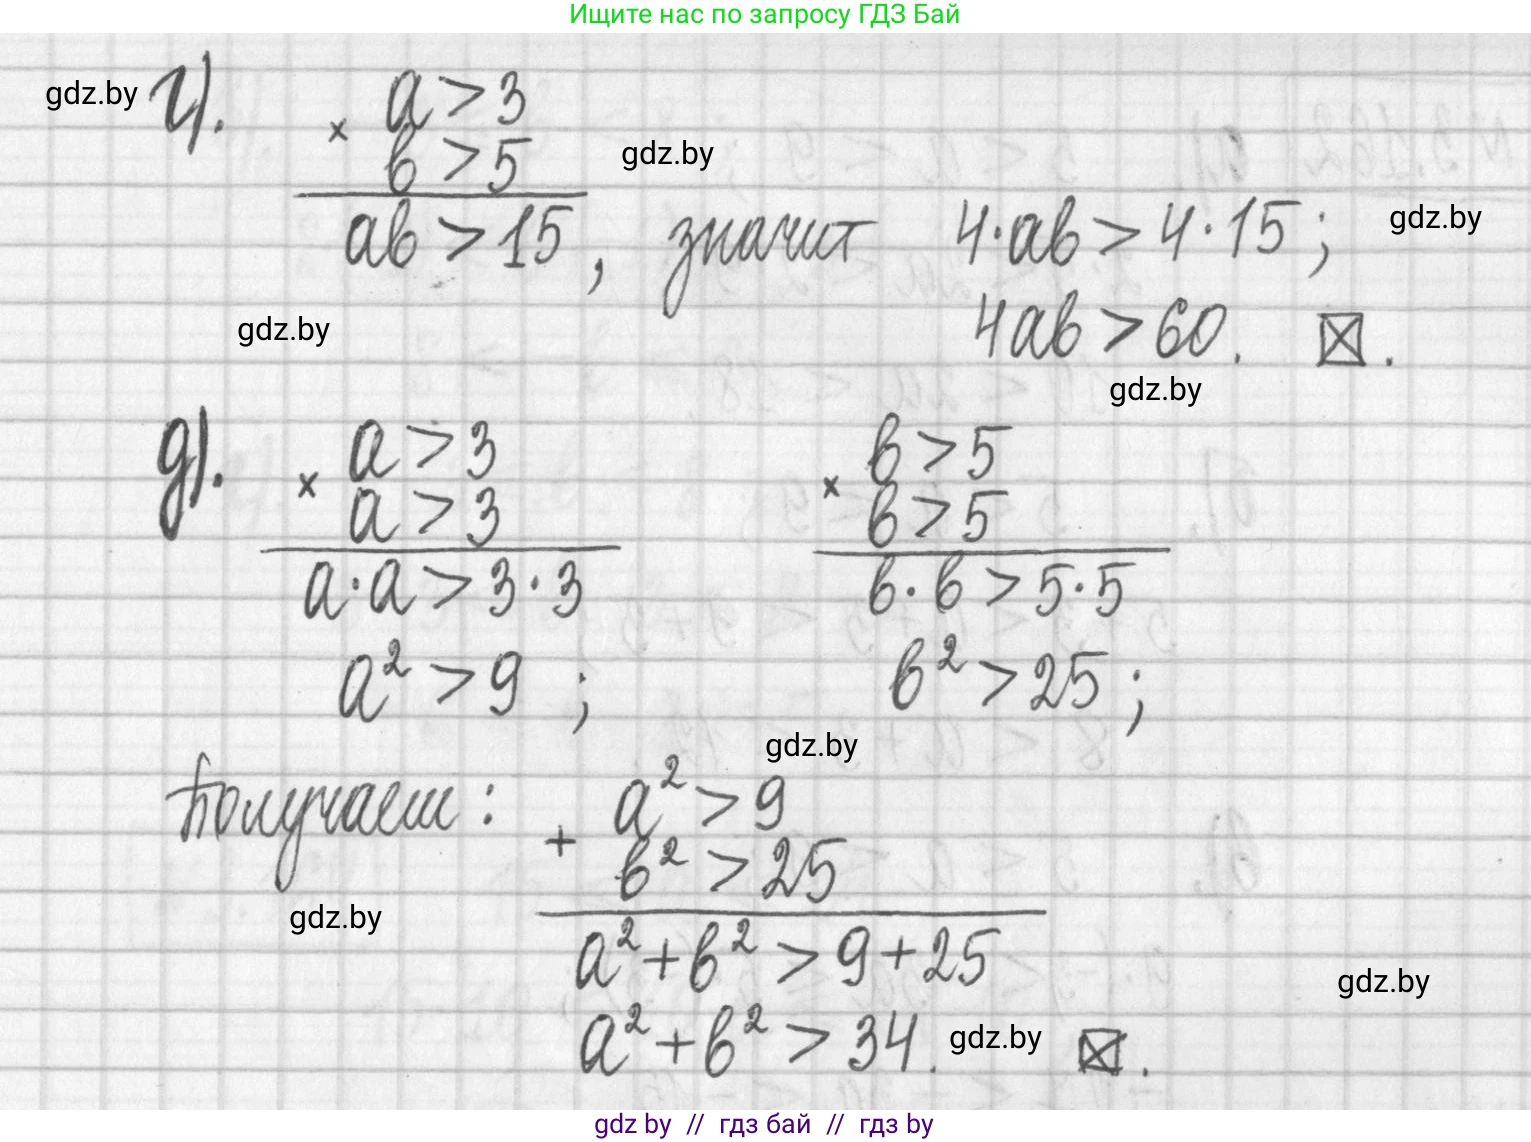 Ищите нас по запросу ГДЗ Бай
gdz.by
г). × a > 3
b > 5
gdz.by
ab > 15, значит 4·ab > 4·15;
gdz.by
gdz.by
4ab > 60. ☒.
gdz.by
д). × a > 3 × b > 5
a > 3 b > 5
a·a > 3·3 b·b > 5·5
a² > 9 ; b² > 25;
gdz.by
Получаем: + a² > 9
b² > 25
gdz.by
a² + b² > 9 + 25
gdz.by
a² + b² > 34. gdz.by ☒.
gdz by // гдз бай // гдз by